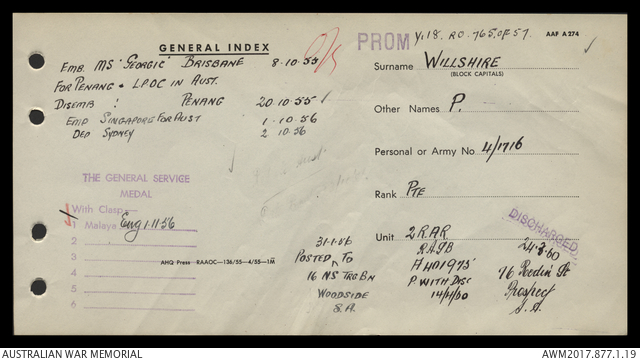 GENERAL INDEX
EMB. MS 'GEORGIC' BRISBANE 8.10.55
FOR PENANG + LPOC IN AUST.
DISEMB. PENANG 20.10.55
EMB SINGAPORE FOR AUST 1.10.56
DED SYDNEY 2 10.56
THE GENERAL SERVICE
MEDAL
With Clasp
1 Malaya Eng 1.11.56
2
3
4
5
6
AHQ Press RAAOC—136/55—4/55—1M
31.1.56
POSTED TO
16 NS TRG BN
WOODSIDE
S.A.
PROM V.18. RO.765 of 57.
AAF A 274
Surname WILLSHIRE
(BLOCK CAPITALS)
Other Names P.
Personal or Army No. 4/1716
Rank PTE
DISCHARGED
Unit 2 RAR
24.3.60
P WITH DISC
76 St
Prospect
S.A.
AUSTRALIAN WAR MEMORIAL
AWM2017.877.1.19